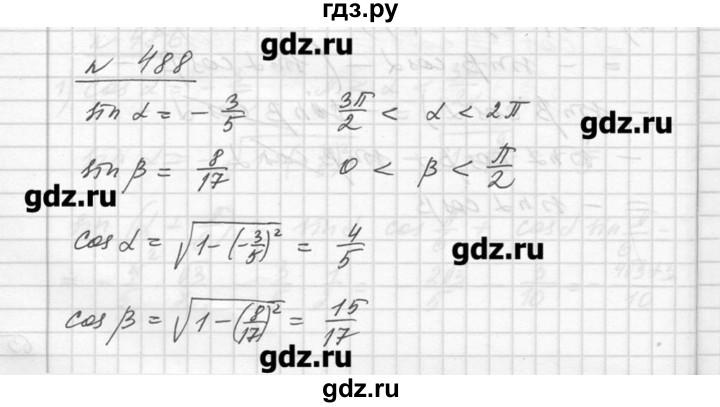 гдз.ру
gdz.ru
№ 488
sin α = - 3/5     3π/2 < α < 2π
gdz.ru
sin β = 8/17     0 < β < π/2
gdz.ru
cos α = √(1-(-3/5)²) = 4/5
gdz.ru
cos β = √(1-(8/17)²) = 15/17
gdz.ru
gdz.ru